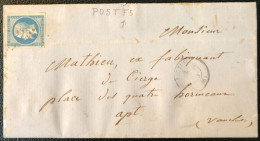 POSTES
Monsieur
Mathieu, ex fabriquant
de Cierge
place des quatre hormeaux
apt
(Vaucluse)